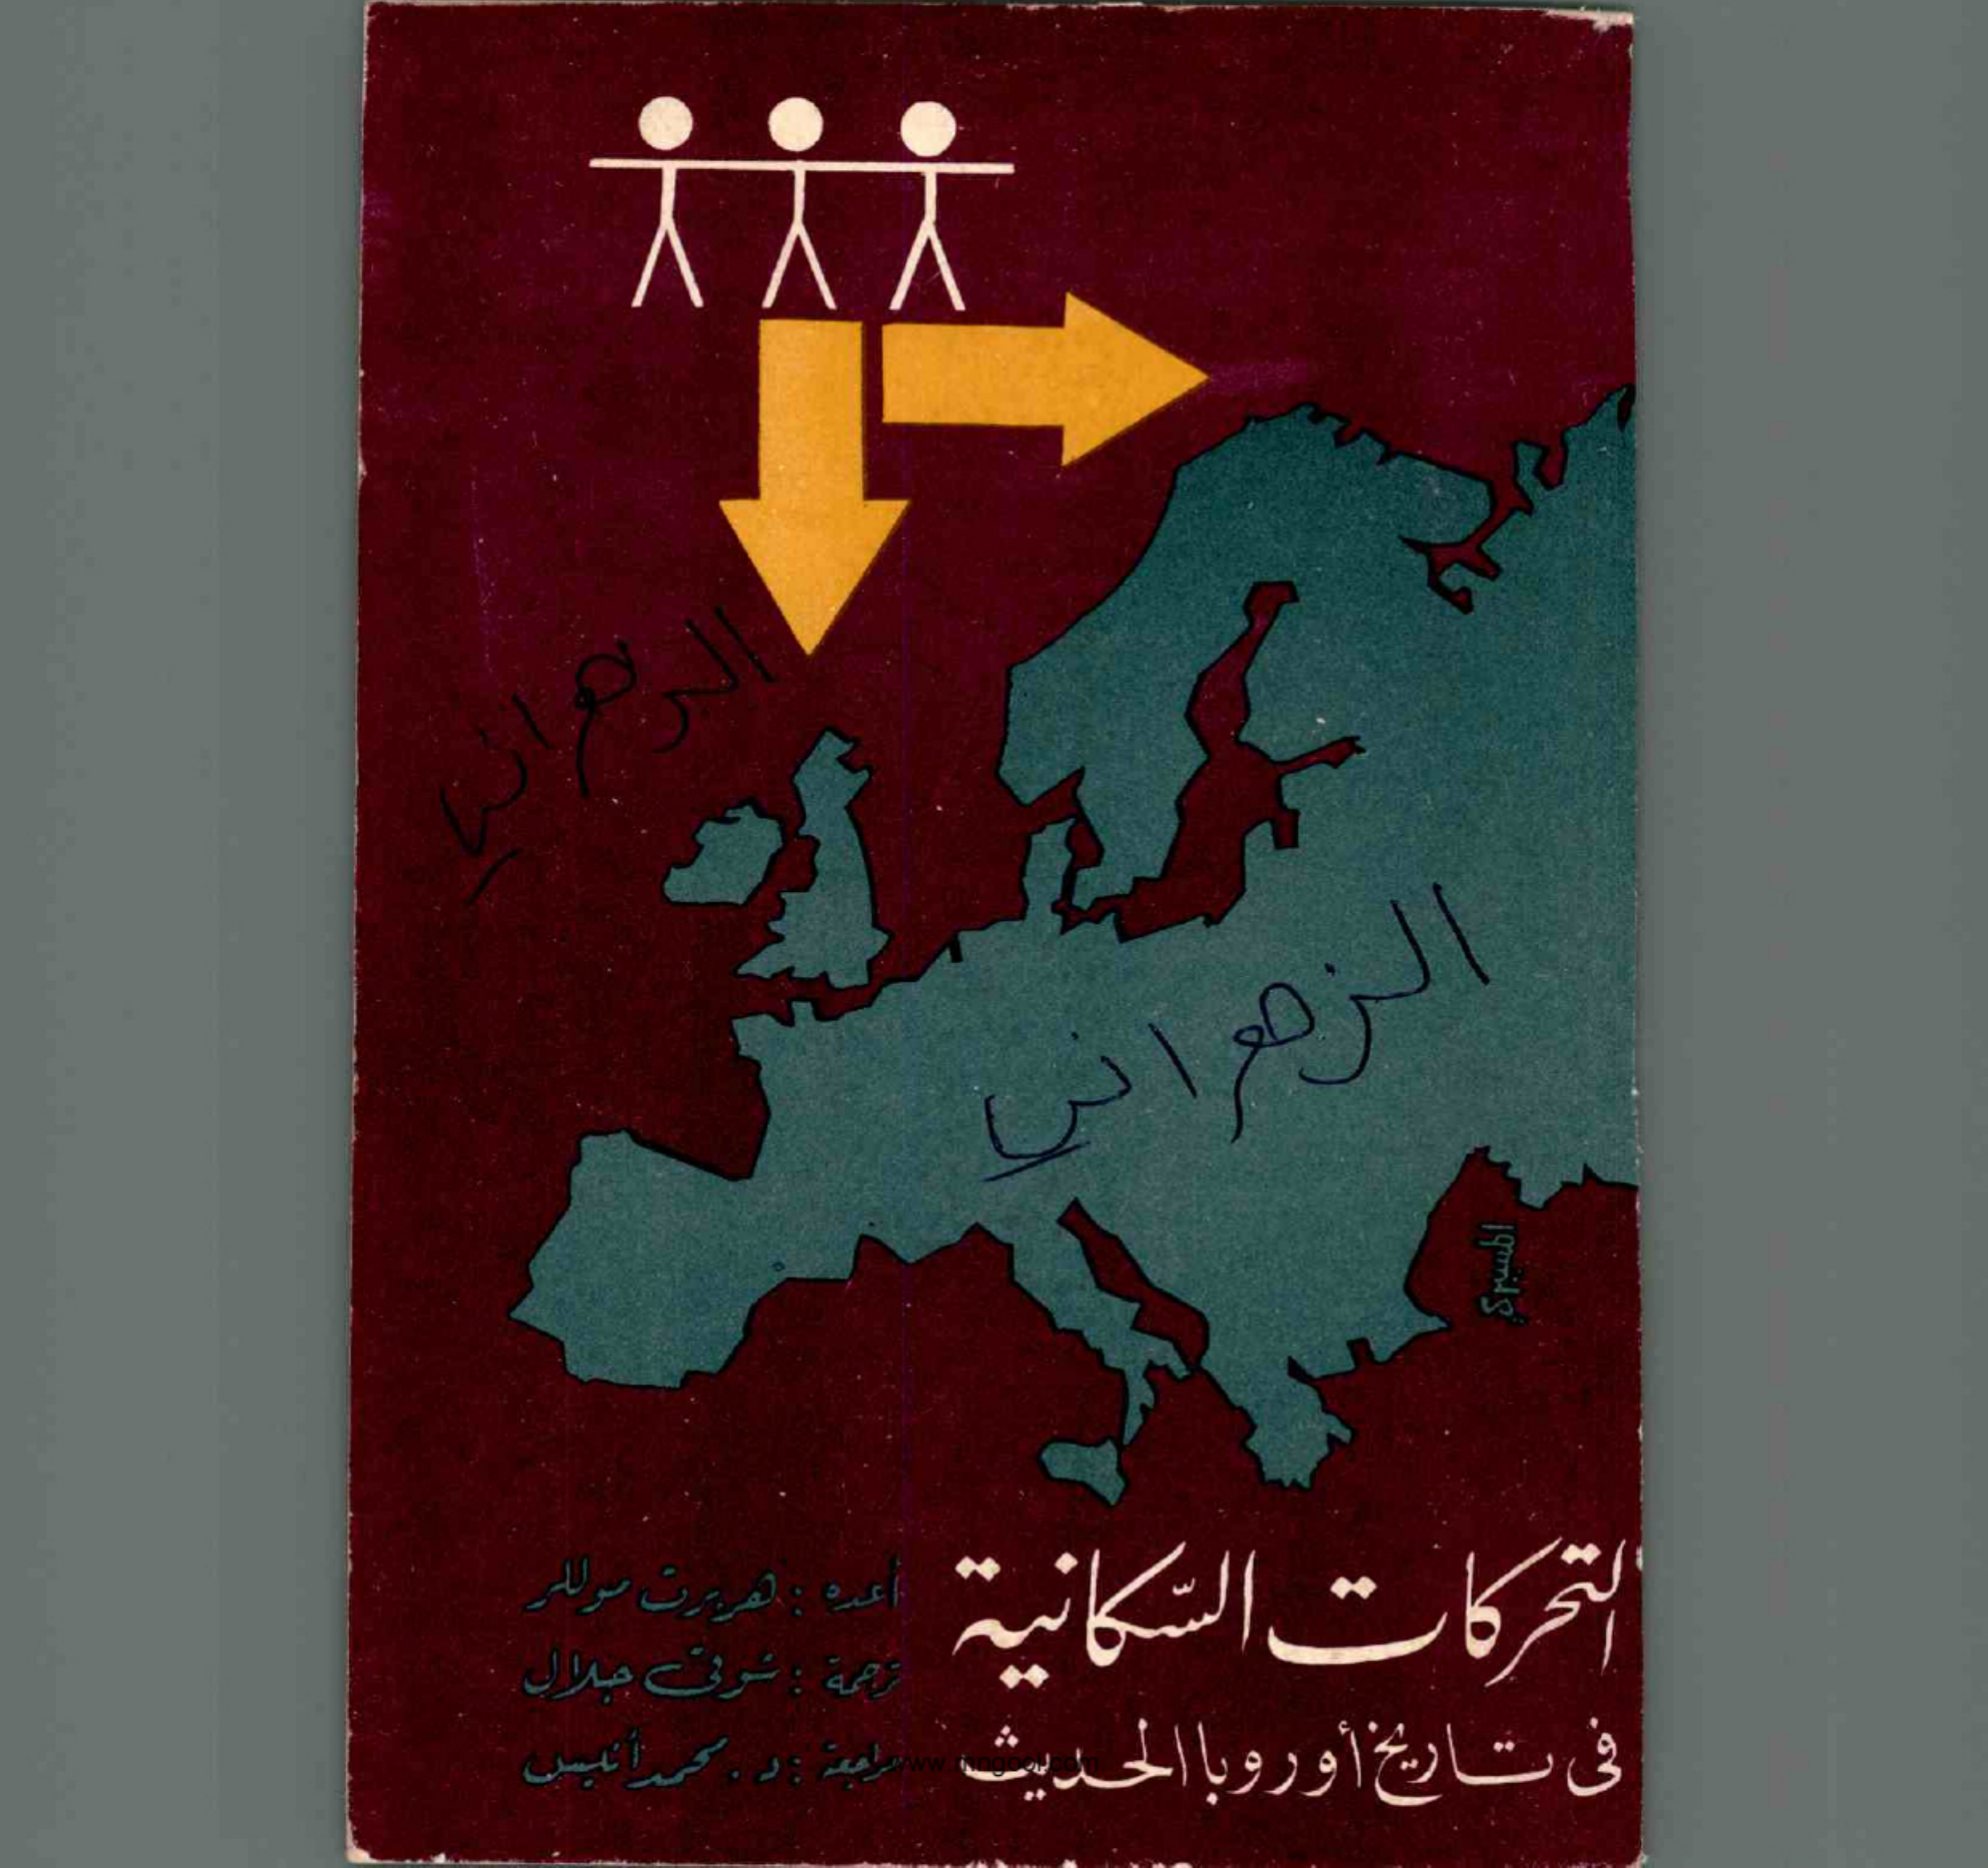 الزهراني
الزهراني
المسيري
التحركات السّكانية
فى تاريخ أوروبا الحديث
أعده : هربرت موللر
ترجمة : شوقى جلال
مراجعة : د . محمد أنيس